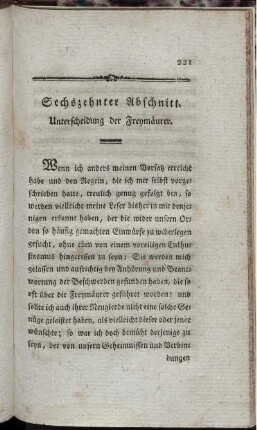 221
Sechszehnter Abschnitt.
Unterscheidung der Freymäurer.
Wenn ich anders meinen Vorsatz erreicht
habe und den Regeln, die ich mir selbst vorge
schrieben hatte, treulich genug gefolgt bin, so
werden vielleicht meine Leser bisher in mir denje
nigen erkannt haben, der die wider unsern Or
den so häufig gemachten Einwürfe zu widerlegen
gesucht, ohne eben von einem voreiligen Enthu
siasmus hingerissen zu seyn: Sie werden mich
gelassen und aufrichtig bey Anhörung und Beant
wortung der Beschwerden gefunden haben, die so
oft über die Freymäurer geführet worden: und
sollte ich auch ihrer Neugierde nicht eine solche Ge
nüge geleistet haben, als vielleicht dieser oder jener
wünschte; so war ich doch bemüht derjenige zu
seyn, der von unsern Geheimnissen und Verbin
dungen